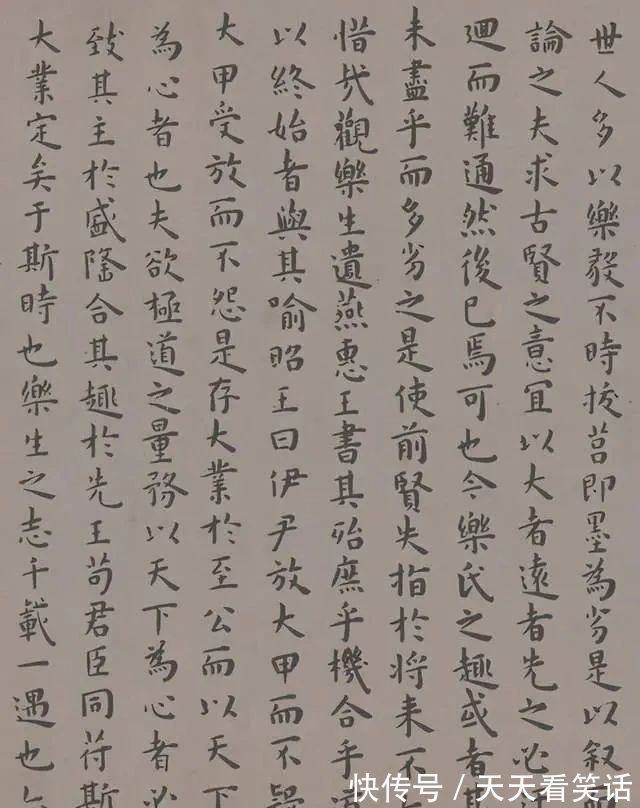 世人多以樂毅不時拔莒即墨為劣是以叙
論之夫求古賢之意宜以大者遠者先之必
迴而難通然後已焉可也今樂氏之趣或者其
未盡乎而多劣之是使前賢失指於将来不
惜哉觀樂生遺燕惠王書其殆庶乎機合乎
以終始者與其喻昭王曰伊尹放大甲而不
大甲受放而不怨是存大業於至公而以天下
為心者也夫欲極道之量務以天下為心者必
致其主於盛隆合其趣於先王苟君臣同符斯
大業定矣于斯時也樂生之志千載一遇也
快传号/天天看笑话